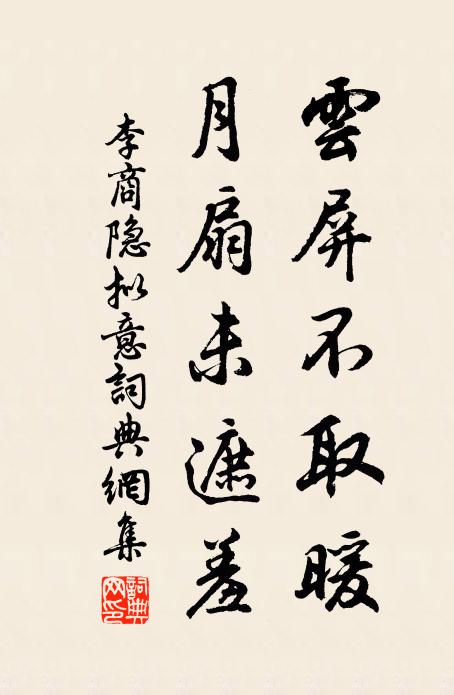 雲屏不取暖
月扇未遮羞
李商隐拟意詞典網集
詞典网印